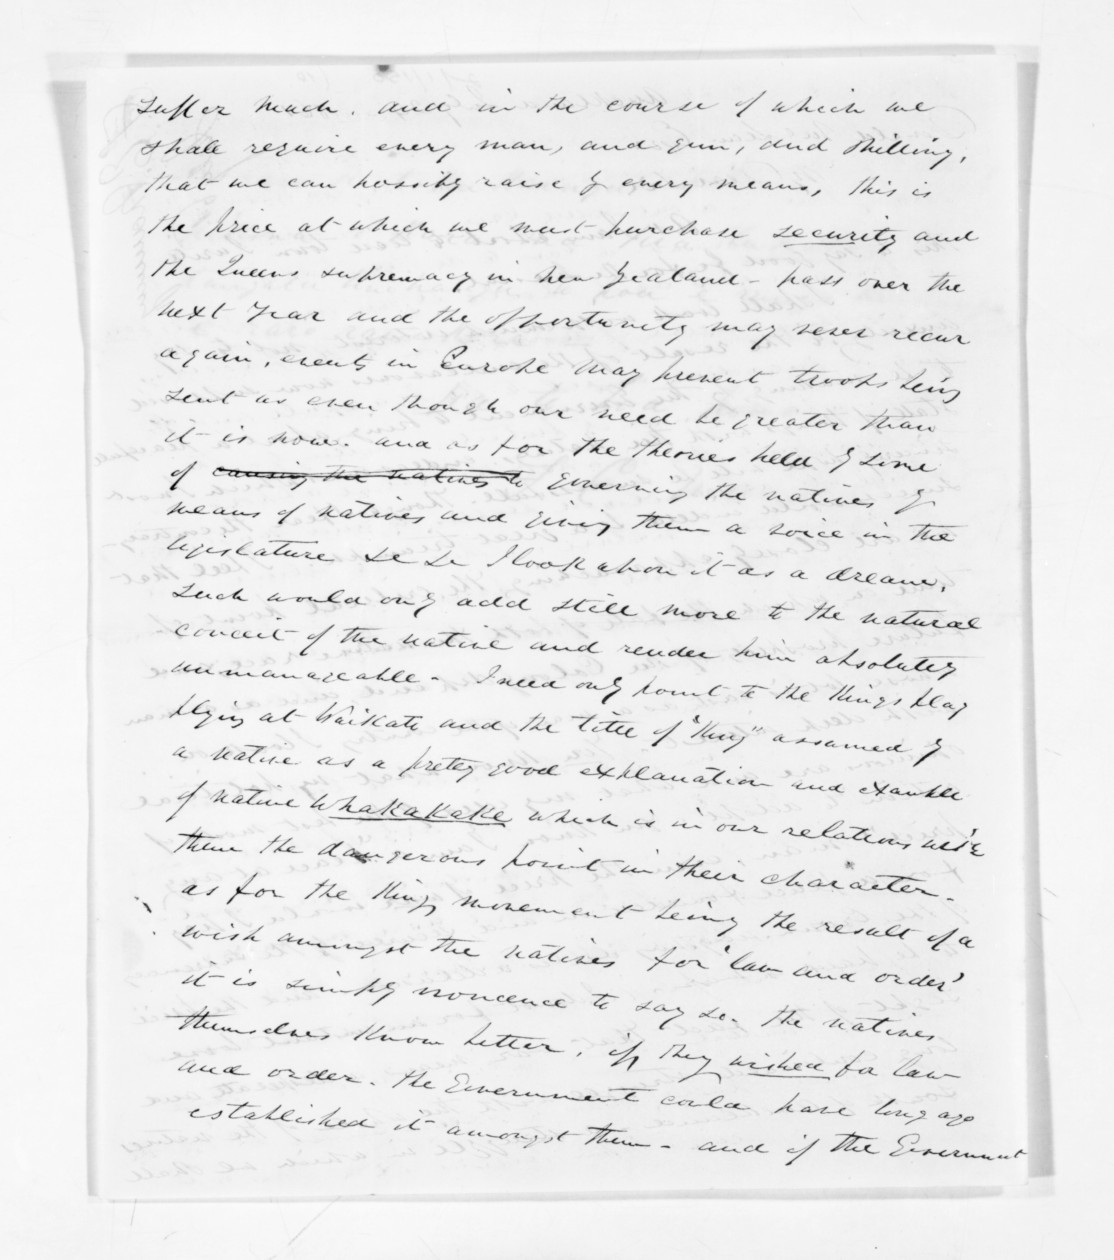 suffer much. and in the course of which we
shall require every man, and gun, and shilling,
that we can possibly raise by every means, this is
the price at which we must purchase security and
the Queens supremacy in New Zealand - pass over the
next year and the opportunity may never recur
again, events in Europe may prevent troops being
sent us even though our need be greater than
it is now. and as for the theories held by some
of causing the natives to governing the natives by
means of natives and giving them a voice in the
legislature &c &c I look upon it as a dream,
such would only add still more to the natural
conceit of the native and render him absolutely
unmanageable - I need only point to the Kings flag
flying at Waikato and the title of "King" assumed by
a native as a pretty good explanation and example
of native Whakakake which is in our relations with
them the dangerous point in their character -
as for the Kings movement being the result of a
wish amongst the natives for 'law and order'
it is simply nonsence to say so. the natives
themselves know better, if they wished for law
and order. the Government could have long ago
established it amongst them - and if the Government